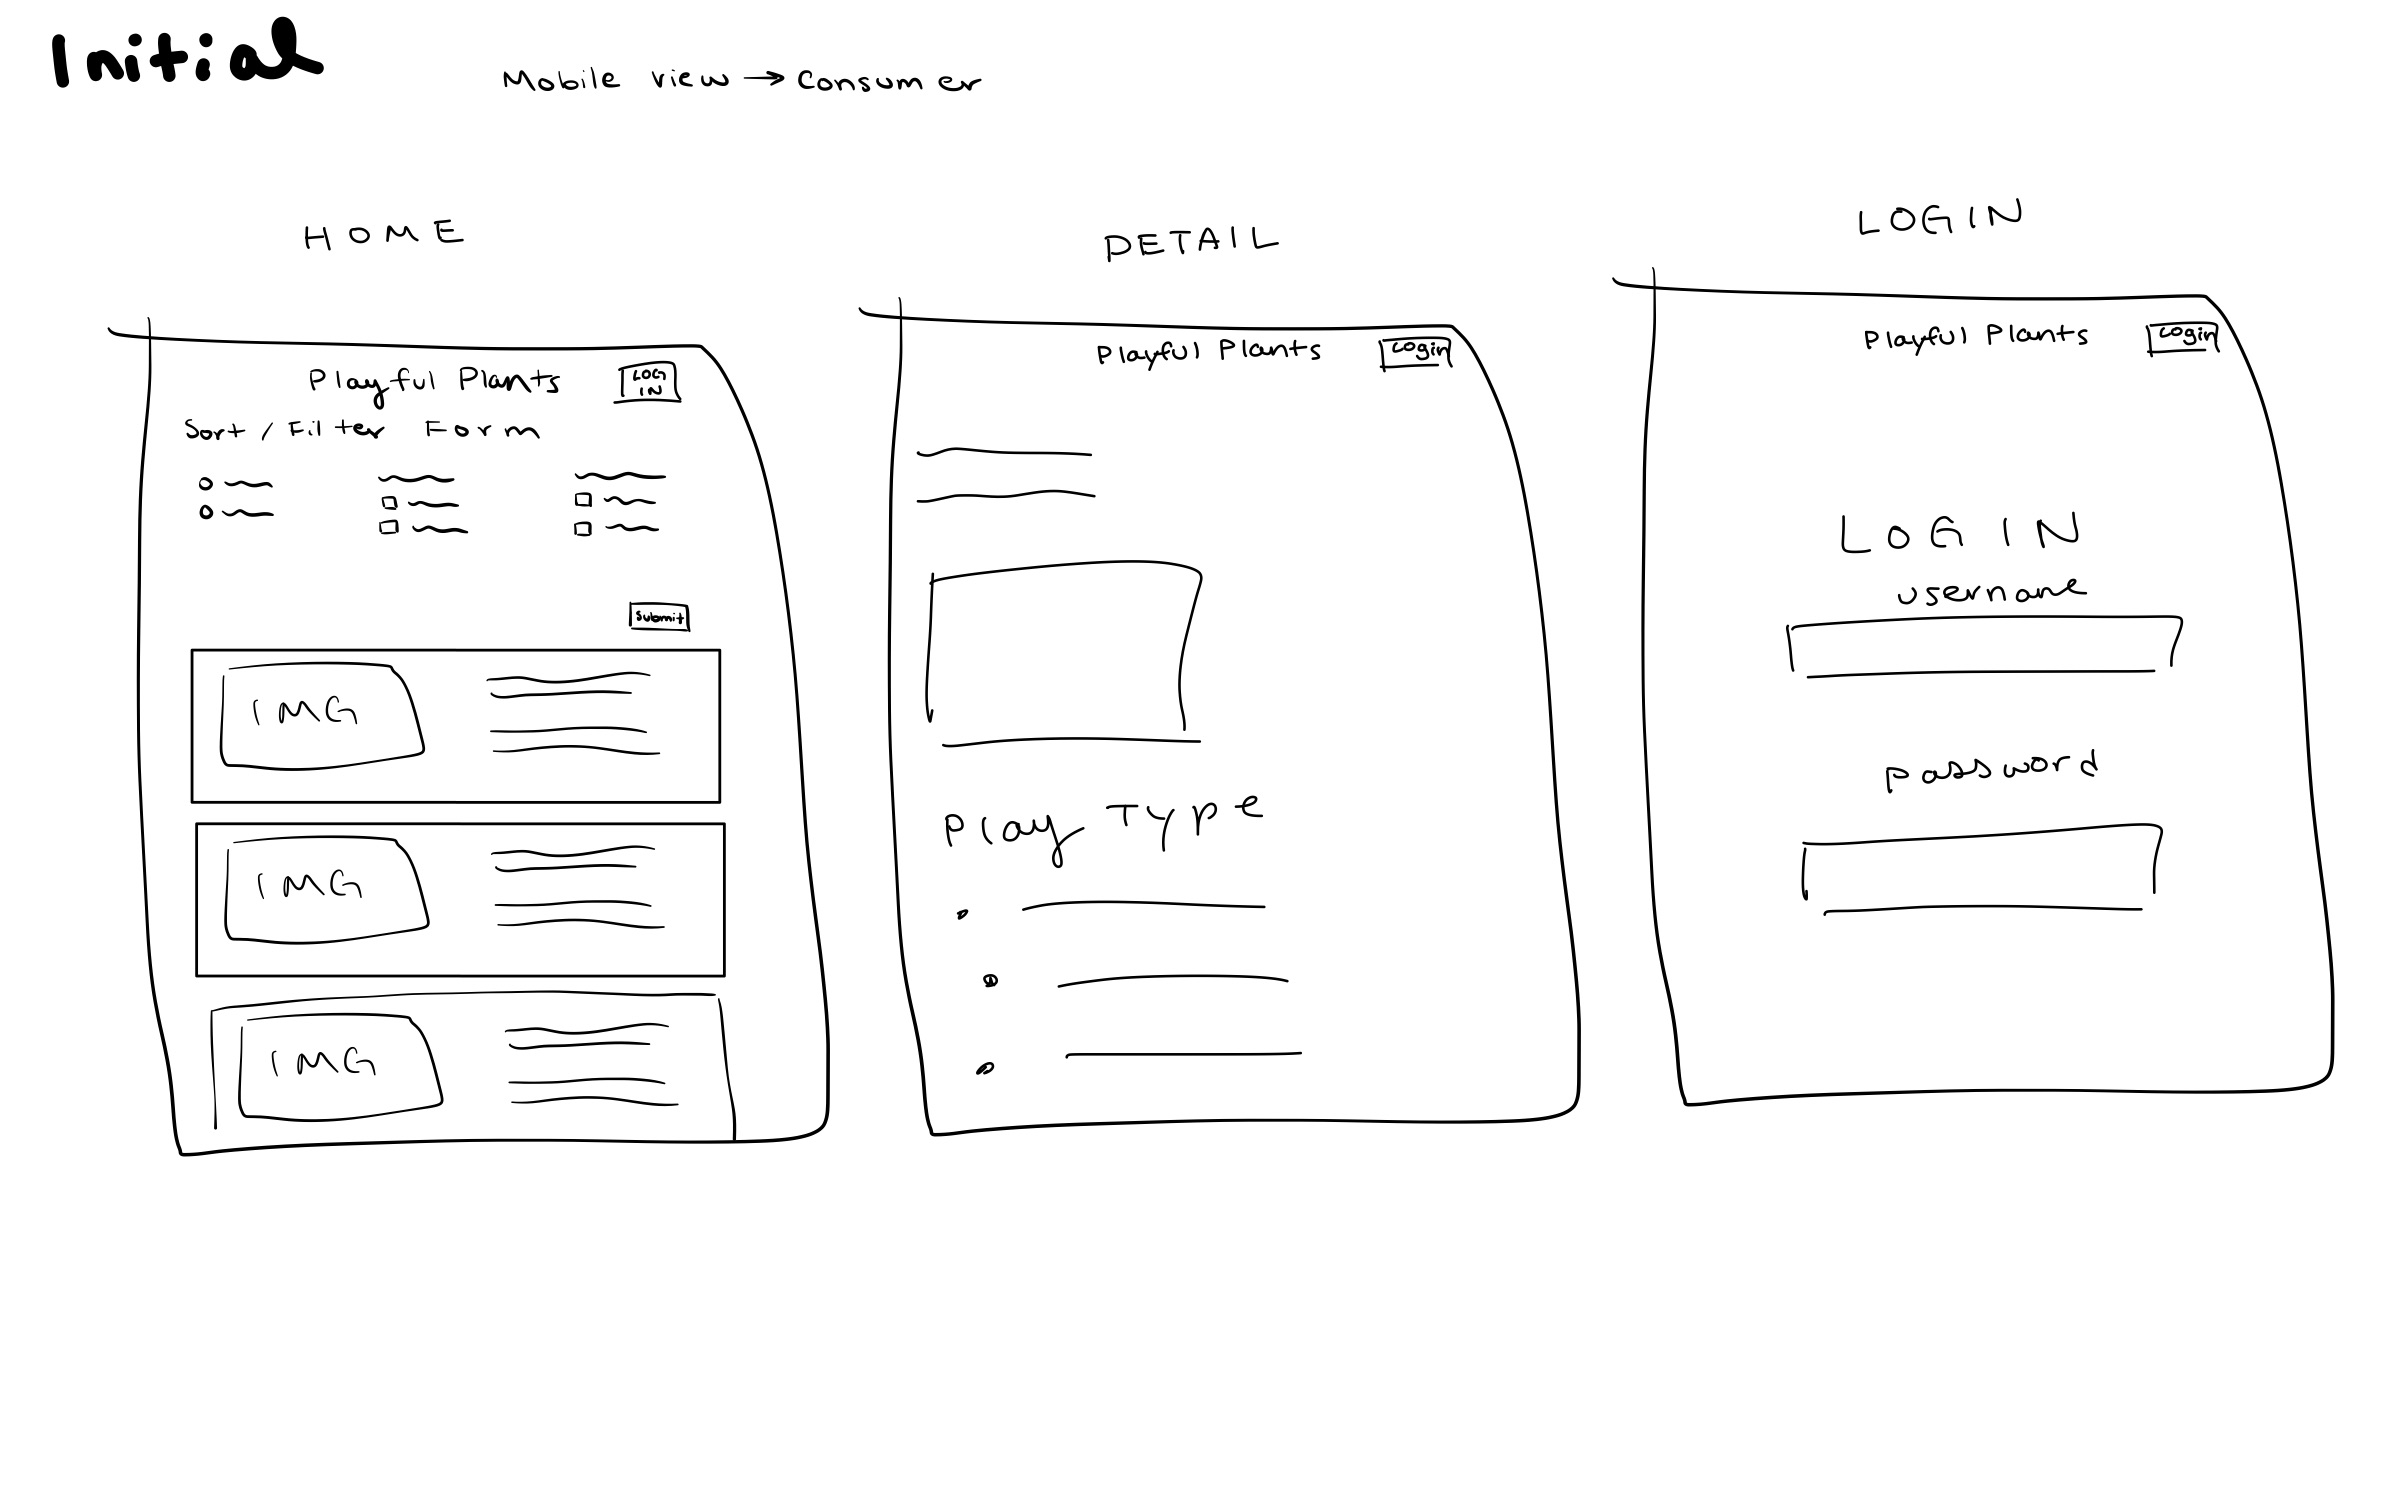 Initial
Mobile view → Consumer
HOME
Playful Plants
LOG
IN
Sort / Filter Form
submit
IMG
IMG
IMG
DETAIL
Playful Plants
Login
Play Type
LOGIN
Playful Plants
Login
LOGIN
username
password